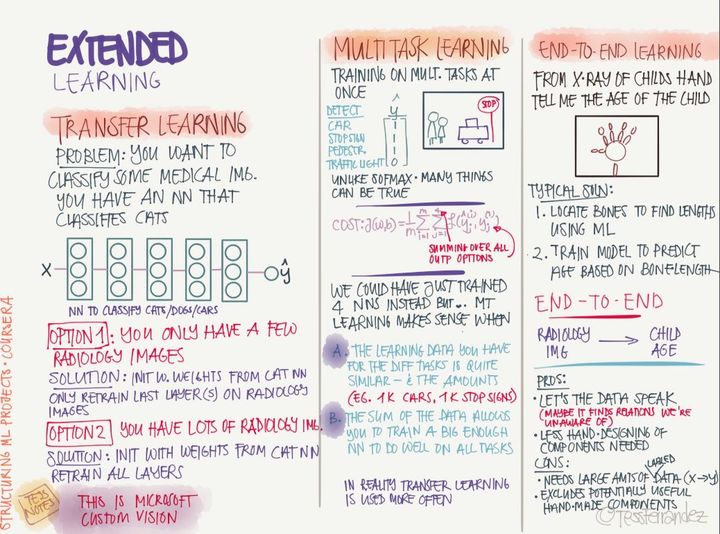 EXTENDED
LEARNING
TRANSFER LEARNING
PROBLEM: YOU WANT TO
CLASSIFY SOME MEDICAL IMG.
YOU HAVE AN NN THAT
CLASSIFIES CATS
X
ŷ
NN TO CLASSIFY CATS/DOGS/CARS
OPTION 1: YOU ONLY HAVE A FEW
RADIOLOGY IMAGES
SOLUTION: INIT W. WEIGHTS FROM CAT NN
ONLY RETRAIN LAST LAYER(S) ON RADIOLOGY
IMAGES
OPTION 2 YOU HAVE LOTS OF RADIOLOGY IMG.
SOLUTION: INIT WITH WEIGHTS FROM CAT NN
RETRAIN ALL LAYERS
TESS
NOTES
THIS IS MICROSOFT
CUSTOM VISION
STRUCTURING ML PROJECTS · COURSERA
MULTITASK LEARNING
TRAINING ON MULT. TASKS AT
ONCE
DETECT
CAR
STOPSIGN
PEDESTR.
TRAFFIC LIGHT
ŷ
1
1
1
0
STOP
UNLIKE SOFMAX · MANY THINGS
CAN BE TRUE
COST: J(w,b) = 1/m Σ i=1 m Σ j=1 4 L(ŷj(i), yj(i))
SUMMING OVER ALL
OUTP OPTIONS
WE COULD HAVE JUST TRAINED
4 NNS INSTEAD BUT... MT
LEARNING MAKES SENSE WHEN
A. THE LEARNING DATA YOU HAVE
FOR THE DIFF TASKS IS QUITE
SIMILAR - & THE AMOUNTS
(EG. 1K CARS, 1K STOP SIGNS)
B. THE SUM OF THE DATA ALLOWS
YOU TO TRAIN A BIG ENOUGH
NN TO DO WELL ON ALL TASKS
IN REALITY TRANSFER LEARNING
IS USED MORE OFTEN
END-TO-END LEARNING
FROM X-RAY OF CHILDS HAND
TELL ME THE AGE OF THE CHILD
TYPICAL SOLN:
1. LOCATE BONES TO FIND LENGTHS
USING ML
2. TRAIN MODEL TO PREDICT
AGE BASED ON BONELENGTH
END-TO-END
RADIOLOGY IMG → CHILD AGE
PROS:
· LET'S THE DATA SPEAK
(MAYBE IT FINDS RELATIONS WE'RE
UNAWARE OF)
· LESS HAND-DESIGNING OF
COMPONENTS NEEDED
CONS:
· NEEDS LARGE AMTS OF LABLED DATA (X→Y)
· EXCLUDES POTENTIALLY USEFUL
HAND-MADE COMPONENTS
@TessFerrandez